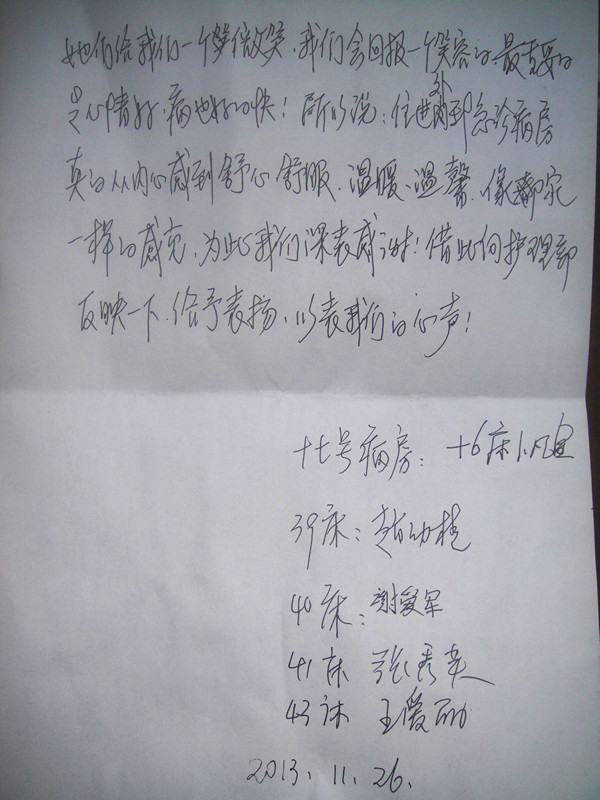 她们给我们一个微笑,我们会回报一个笑容的最重要的
是心情好,病也好的快!所以说:住进外科急诊病房
真的从内心感到舒心舒服、温暖、温馨、像在家
一样的感觉,为此我们深表感谢!借此向护理部
反映一下、给予表扬,以表我们的心声!
十七号病房:+6床
39床:赵幼桂
40床:谢爱军
41床 张秀英
43床 王爱丽
2013.11.26.